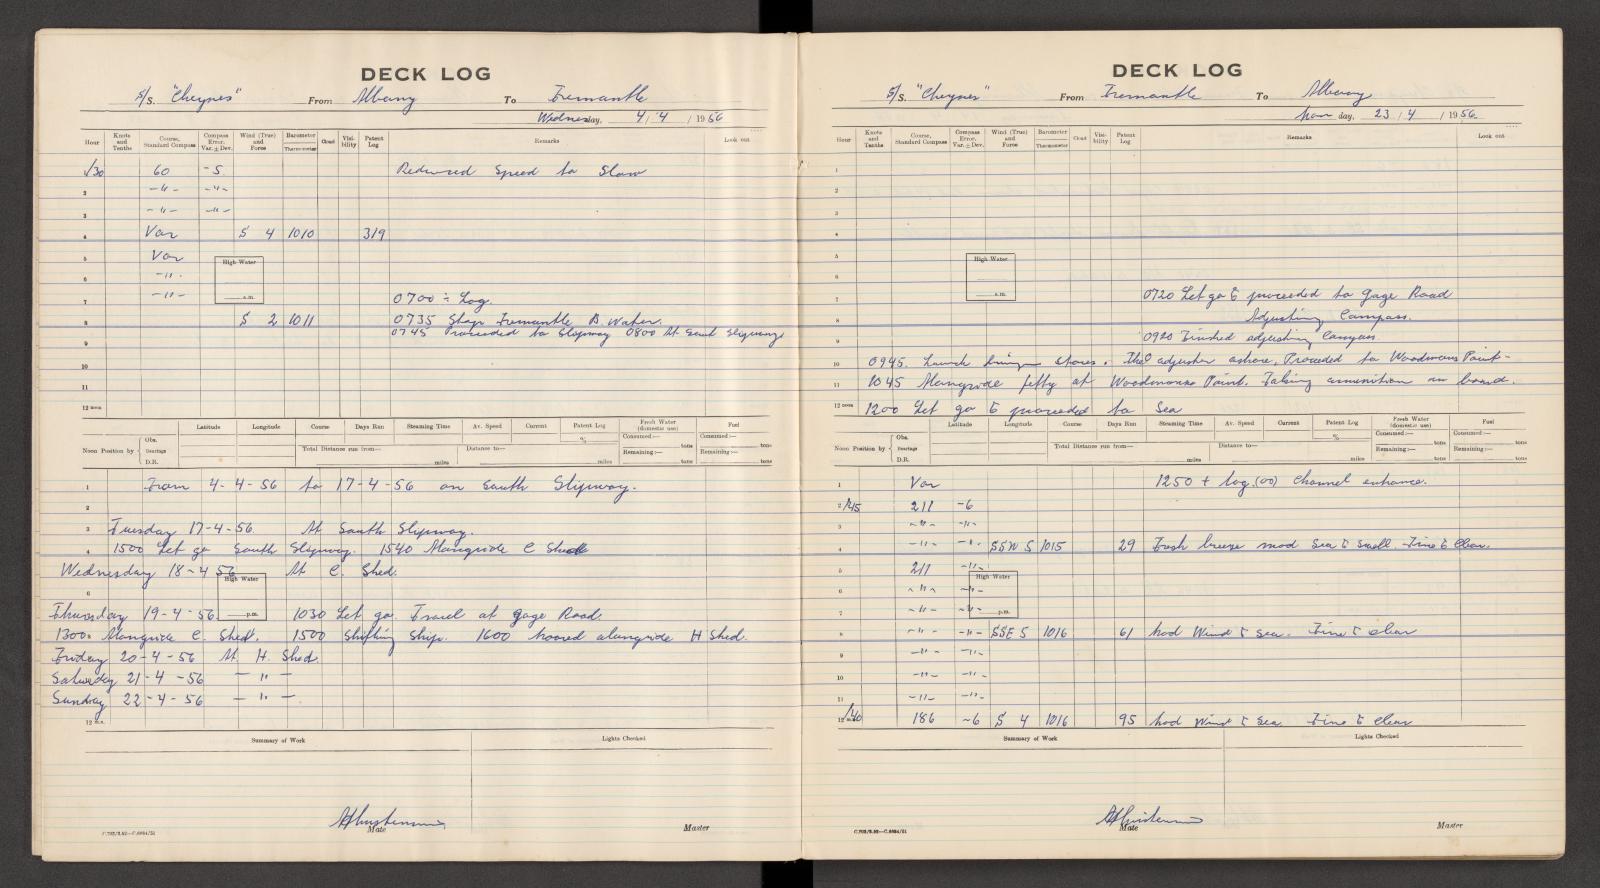 DECK LOG
S/S. "Cheynes" From Albany To Fremantle
Wednesday, 4/4/1956
Hour Knots and Tenths Course, Standard Compass Compass Error, Var. ± Dev. Wind (True) and Force Barometer Thermometer Cloud Visibility Patent Log Remarks Look out
1/30 60 -5 Reduced Speed to Slow
2 -"- -"-
3 -"- -"-
4 Var S 4 1010 319
5 Var
6 -"-
High Water
a.m.
7 -"- 0700 ÷ Log.
8 S 2 1011 0735 Stop Fremantle B. Water.
0745 Proceeded to Slipway 0800 At South Slipway
9
10
11
12 noon
Latitude Longitude Course Days Run Steaming Time Av. Speed Current Patent Log Fresh Water (domestic use) Fuel
Noon Position by Obs. Bearings D.R. Total Distance run from— miles Distance to— miles % Consumed:— tons Remaining:— tons Consumed:— tons Remaining:— tons
1 From 4-4-56 to 17-4-56 on South Slipway.
2
3 Tuesday 17-4-56 At South Slipway.
4 1500 Let go South Slipway. 1540 Alongside C Shed
Wednesday 18-4 56 At C. Shed.
High Water
p.m.
6
Thursday 19-4-56 1030 Let go. at Gage Road.
1300 Alongside C. Shed. 1500 Shifting ship. 1600 moored alongside H Shed.
Friday 20-4-56 At H. Shed.
Saturday 21-4-56 — " —
Sunday 22-4-56 — " —
12 m.n.
Summary of Work Lights Checked
Mate Master
C.702/3.52—C.6664/51
DECK LOG
S/S. "Cheynes" From Fremantle To Albany
Mon day, 23/4/1956
Hour Knots and Tenths Course, Standard Compass Compass Error, Var. ± Dev. Wind (True) and Force Barometer Thermometer Cloud Visibility Patent Log Remarks Look out
1
2
3
4
5
6
High Water
a.m.
7 0720 Let go & proceeded to Gage Road
8 Adjusting Compass.
9 0920 Finished adjusting Compass
10 0945. Launch bringing stores. The adjuster ashore, Proceeded to Woodmans Point-
11 1045 Alongside jetty at Woodmans Point. Taking amunition on board.
12 noon 1200 Let go & proceeded to Sea
Latitude Longitude Course Days Run Steaming Time Av. Speed Current Patent Log Fresh Water (domestic use) Fuel
Noon Position by Obs. Bearings D.R. Total Distance run from— miles Distance to— miles % Consumed:— tons Remaining:— tons Consumed:— tons Remaining:— tons
1 Var 1250 + log.(00) Channel entrance.
2/45 211 -6
3 -"- -"-
4 -"- -"- SSW 5 1015 29 Fresh breeze mod Sea & Swell. Fine & Clear.
5 211 -"-
High Water
p.m.
6 -"- -"-
7 -"- -"-
8 -"- -"- SSE 5 1016 61 mod Wind & Sea. Fine & clear
9 -"- -"-
10 -"- -"-
11 -"- -"-
12 m.n. /40 186 -6 S 4 1016 95 mod Wind & Sea Fine & Clear
Summary of Work Lights Checked
Mate Master
C.702/3.52—C.6664/51